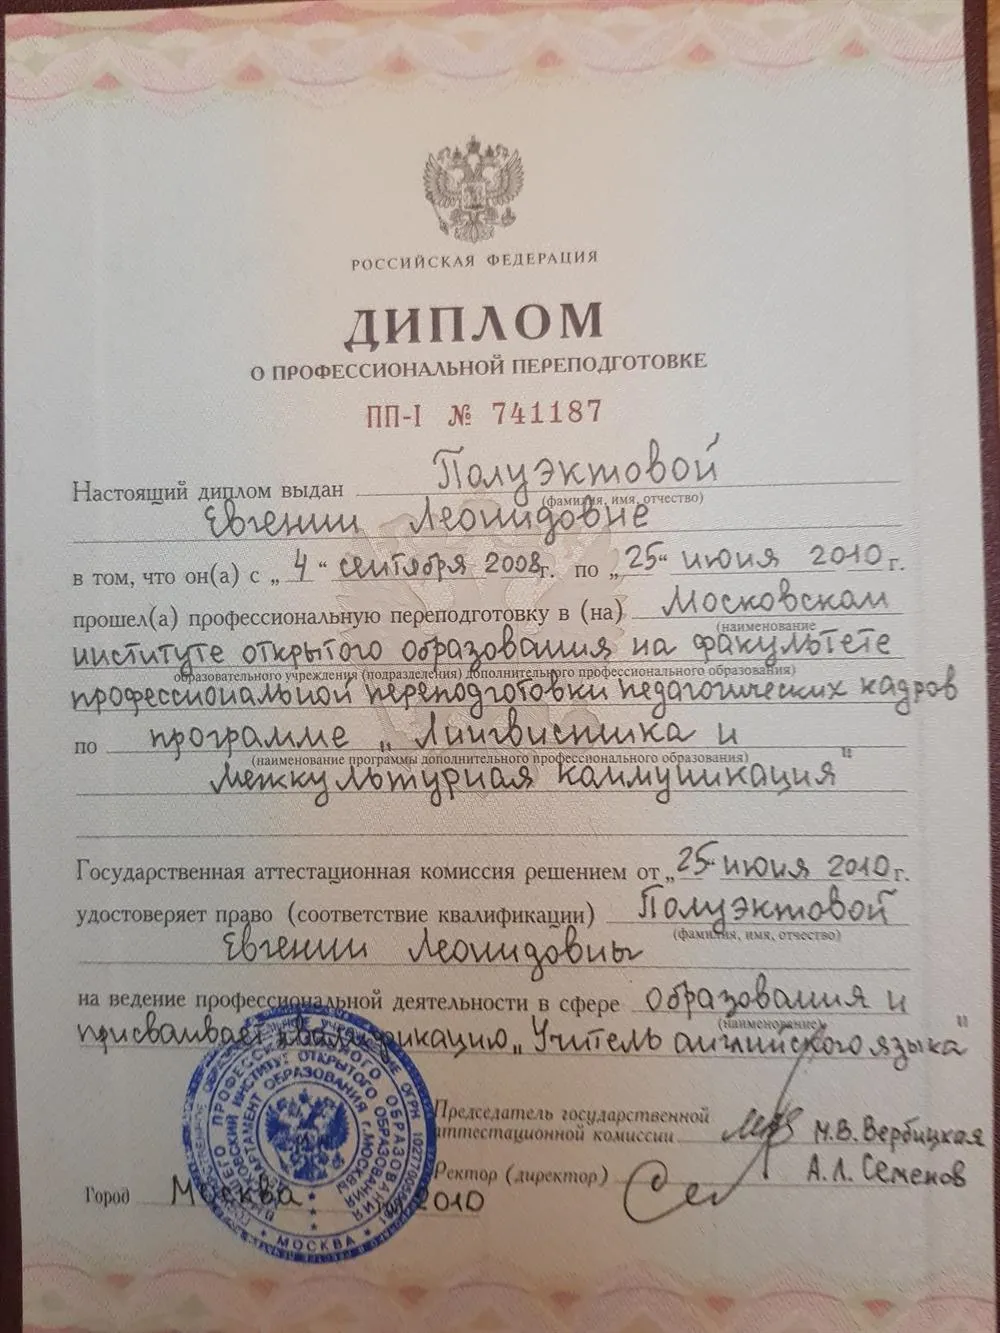 РОССИЙСКАЯ ФЕДЕРАЦИЯ
ДИПЛОМ
О ПРОФЕССИОНАЛЬНОЙ ПЕРЕПОДГОТОВКЕ
ПП-I № 741187
Настоящий диплом выдан Полуэктовой
(фамилия, имя, отчество)
Евгении Леонидовне
в том, что он(а) с „4“ сентября 2008г. по „25“ июня 2010г.
прошел(а) профессиональную переподготовку в (на) Московском
(наименование
институте открытого образования на факультете
образовательного учреждения (подразделения) дополнительного профессионального образования)
профессиональной переподготовки педагогических кадров
по программе „Лингвистика и
(наименование программы дополнительного профессионального образования)
межкультурная коммуникация"
Государственная аттестационная комиссия решением от „25“ июня 2010г.
удостоверяет право (соответствие квалификации) Полуэктовой
(фамилия, имя, отчество)
Евгении Леонидовны
на ведение профессиональной деятельности в сфере образования и
(наименование)
присваивает квалификацию „Учитель английского языка"
Председатель государственной
аттестационной комиссии М.В. Вербицкая
Ректор (директор) А.Л. Семенов
Город Москва 2010
ИНСТИТУТ ОТКРЫТОГО ОБРАЗОВАНИЯ
ДЕПАРТАМЕНТ ОБРАЗОВАНИЯ г. МОСКВЫ
МОСКВА